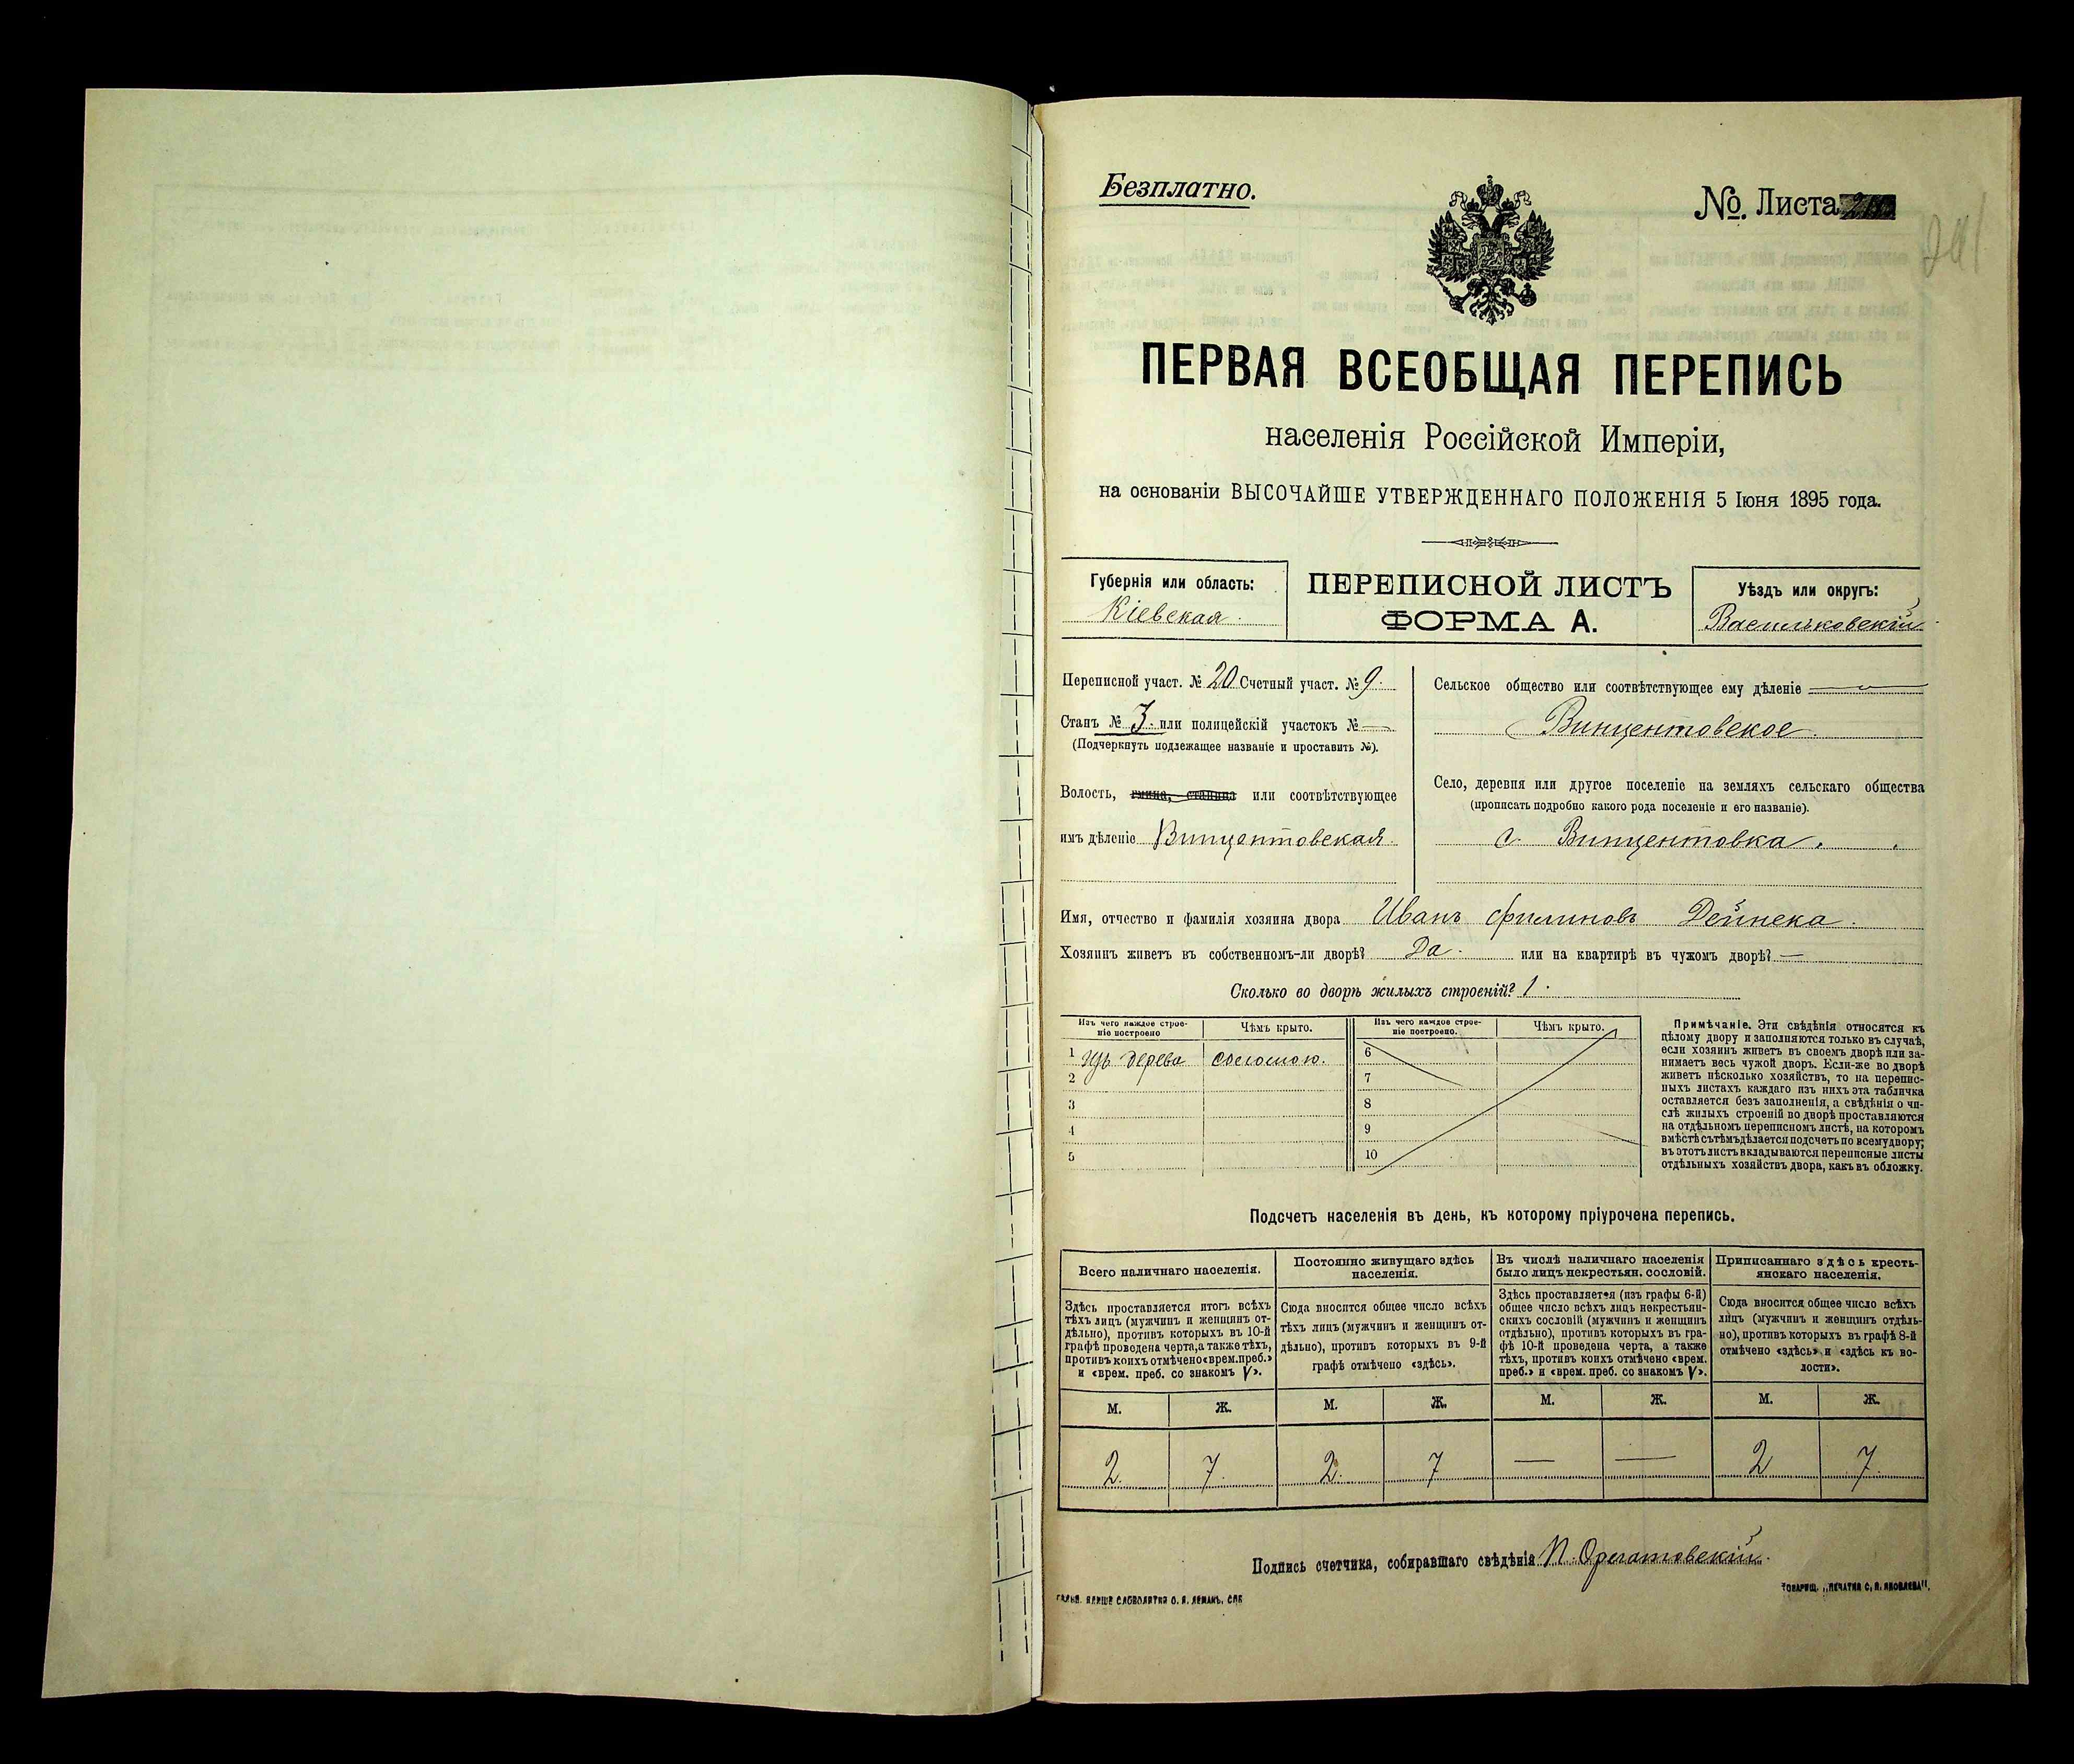 Безплатно.
№. Листа
241
ПЕРВАЯ ВСЕОБЩАЯ ПЕРЕПИСЬ
населенія Россійской Имперіи,
на основаніи ВЫСОЧАЙШЕ УТВЕРЖДЕННАГО ПОЛОЖЕНІЯ 5 Іюня 1895 года.
Губернія или область:
Кіевская.
ПЕРЕПИСНОЙ ЛИСТЪ
ФОРМА А.
Уѣздъ или округъ:
Васильковскій
Переписной участ. № 20 Счетный участ. № 9.
Станъ № 3. или полицейскій участокъ № —
(Подчеркнуть подлежащее названіе и проставить №).
Волость, гмина, станица или соотвѣтствующее
имъ дѣленіе Винцентовская.
Сельское общество или соотвѣтствующее ему дѣленіе
Винцентовское.
Село, деревня или другое поселеніе на земляхъ сельскаго общества
(прописать подробно какого рода поселеніе и его названіе).
с. Винцентовка.
Имя, отчество и фамилія хозяина двора Иванъ Филиповъ Дейнека.
Хозяинъ живетъ въ собственномъ-ли дворѣ? Да. или на квартирѣ въ чужомъ дворѣ? —
Сколько во дворѣ жилыхъ строеній? 1.
Изъ чего каждое строе-
ніе построено
Чѣмъ крыто.
Изъ чего каждое строе-
ніе построено.
Чѣмъ крыто.
1 Изъ дерева соломою. 6
2 7
3 8
4 9
5 10
Примѣчаніе. Эти свѣдѣнія относятся къ
цѣлому двору и заполняются только въ случаѣ,
если хозяинъ живетъ въ своемъ дворѣ или за-
нимаетъ весь чужой дворъ. Если-же во дворѣ
живетъ нѣсколько хозяйствъ, то на перепис-
ныхъ листахъ каждаго изъ нихъ эта табличка
оставляется безъ заполненія, а свѣдѣнія о чи-
слѣ жилыхъ строеній во дворѣ проставляются
на отдѣльномъ переписномъ листѣ, на которомъ
вмѣстѣ съ тѣмъ дѣлается подсчетъ по всему двору;
въ этотъ листъ вкладываются переписные листы
отдѣльныхъ хозяйствъ двора, какъ въ обложку.
Подсчетъ населенія въ день, къ которому пріурочена перепись.
Всего наличнаго населенія.
Здѣсь проставляется итогъ всѣхъ
тѣхъ лицъ (мужчинъ и женщинъ от-
дѣльно), противъ которыхъ въ 10-й
графѣ проведена черта, а также тѣхъ,
противъ коихъ отмѣчено «врем. преб.»
и «врем. преб. со знакомъ V».
Постоянно живущаго здѣсь
населенія.
Сюда вносится общее число всѣхъ
тѣхъ лицъ (мужчинъ и женщинъ от-
дѣльно), противъ которыхъ въ 9-й
графѣ отмѣчено «здѣсь».
Въ числѣ наличнаго населенія
было лицъ некрестьян. сословій.
Здѣсь проставляется (изъ графы 6-й)
общее число всѣхъ лицъ некрестьян-
скихъ сословій (мужчинъ и женщинъ
отдѣльно), противъ которыхъ въ гра-
фѣ 10-й проведена черта, а также
тѣхъ, противъ коихъ отмѣчено «врем.
преб.» и «врем. преб. со знакомъ V».
Приписаннаго здѣсь кресть-
янскаго населенія.
Сюда вносится общее число всѣхъ
лицъ (мужчинъ и женщинъ отдѣль-
но), противъ которыхъ въ графѣ 8-й
отмѣчено «здѣсь» и «здѣсь къ во-
лости».
М. Ж. М. Ж. М. Ж. М. Ж.
2. 7. 2. 7 — — 2 7.
Подпись счетчика, собиравшаго свѣдѣнія
СЛОВОЛИТНЯ О. И. ЛЕМАНЪ, СПБ
ТОВАРИЩ. „ПЕЧАТНЯ С. П. ЯКОВЛЕВА".